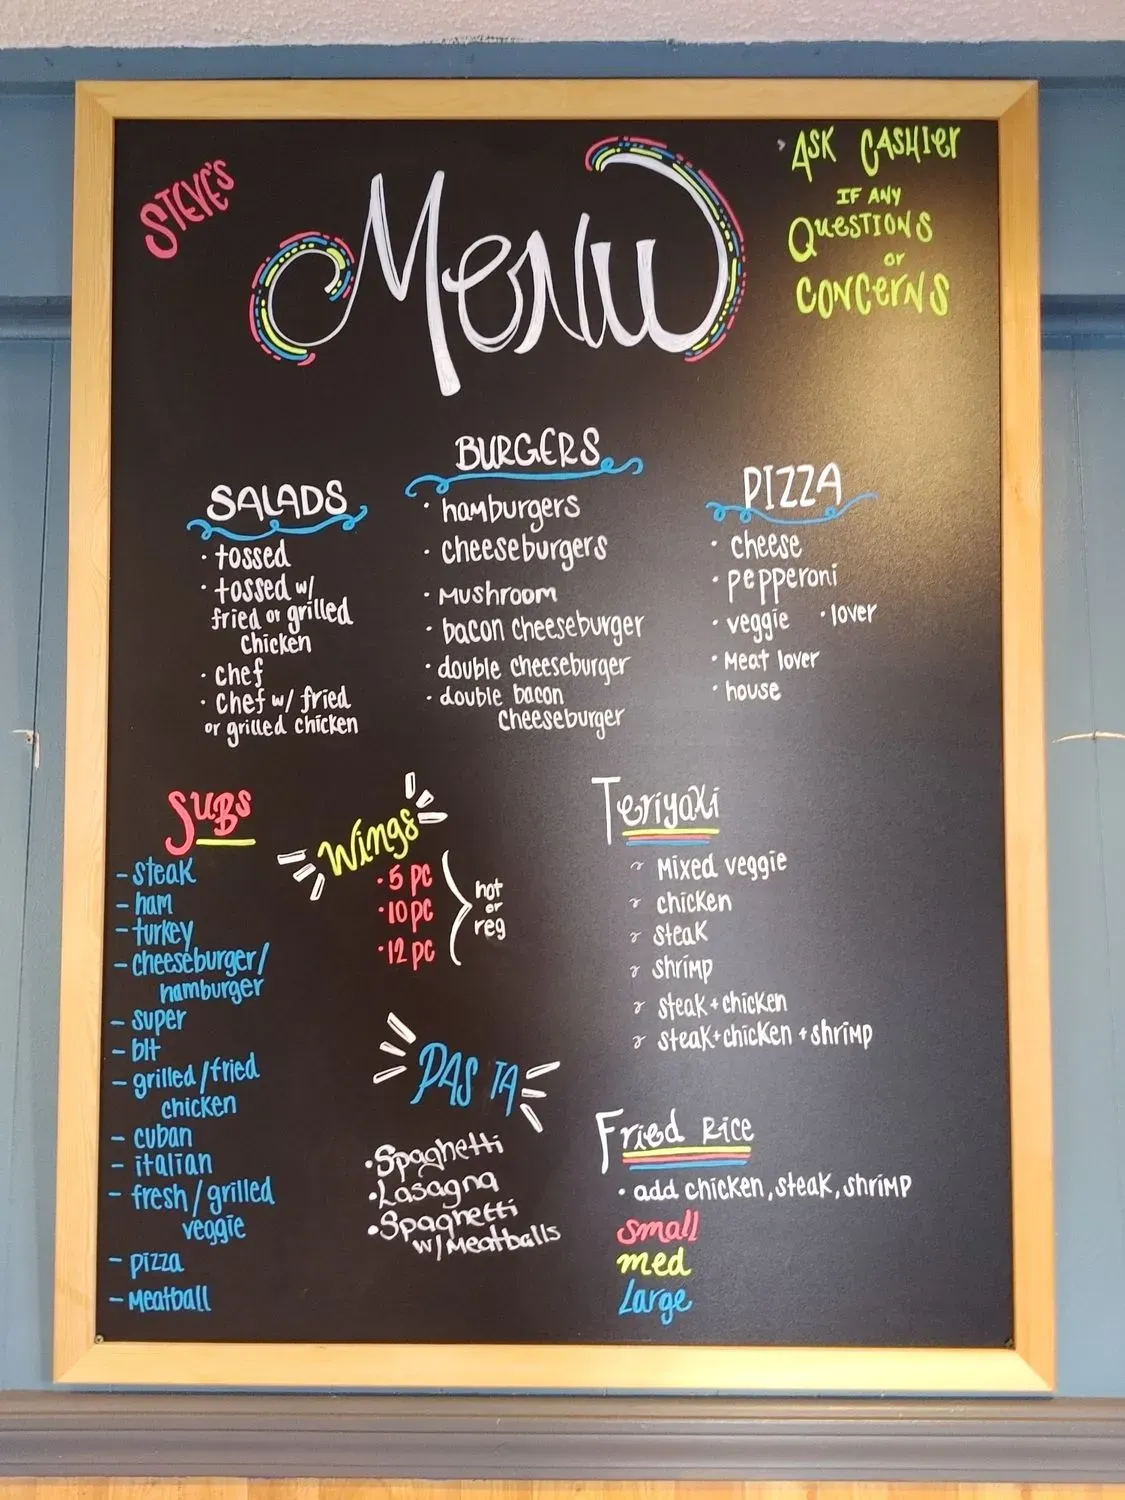 STEVE'S
MENU
ASK CASHIER
IF ANY
QUESTIONS
or
CONCERNS
SALADS
· tossed
· tossed w/
fried or grilled
chicken
· chef
· chef w/ fried
or grilled chicken
BURGERS
· hamburgers
· cheeseburgers
· mushroom
· bacon cheeseburger
· double cheeseburger
· double bacon
cheeseburger
PIZZA
· cheese
· pepperoni
· veggie · lover
· Meat lover
· house
SUBS
- steak
- ham
- turkey
- cheeseburger/
hamburger
- super
- blt
- grilled/fried
chicken
- cuban
- italian
- fresh/grilled
veggie
- pizza
- Meatball
Wings
· 5 pc
· 10 pc
· 12 pc
hot
or
reg
PASTA
· Spaghetti
· Lasagna
· Spaghetti
w/Meatballs
Teriyaki
Mixed veggie
chicken
steak
shrimp
steak+chicken
steak+chicken+shrimp
Fried Rice
· add chicken, steak, shrimp
small
med
Large